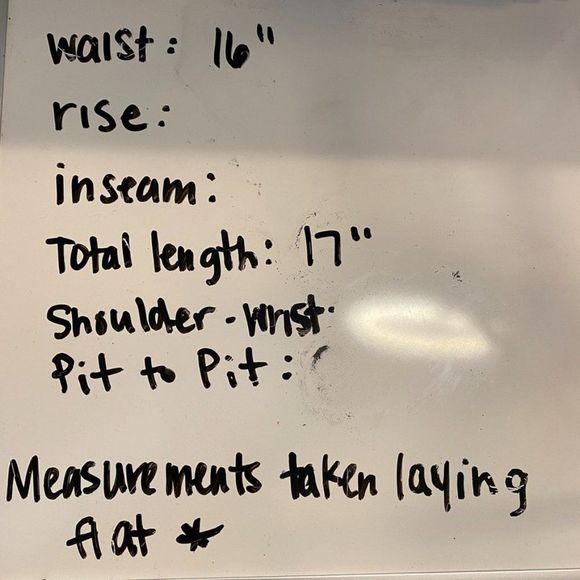 waist: 16"
rise:
inseam:
Total length: 17"
Shoulder-wrist
Pit to Pit:
Measurements taken laying
flat *